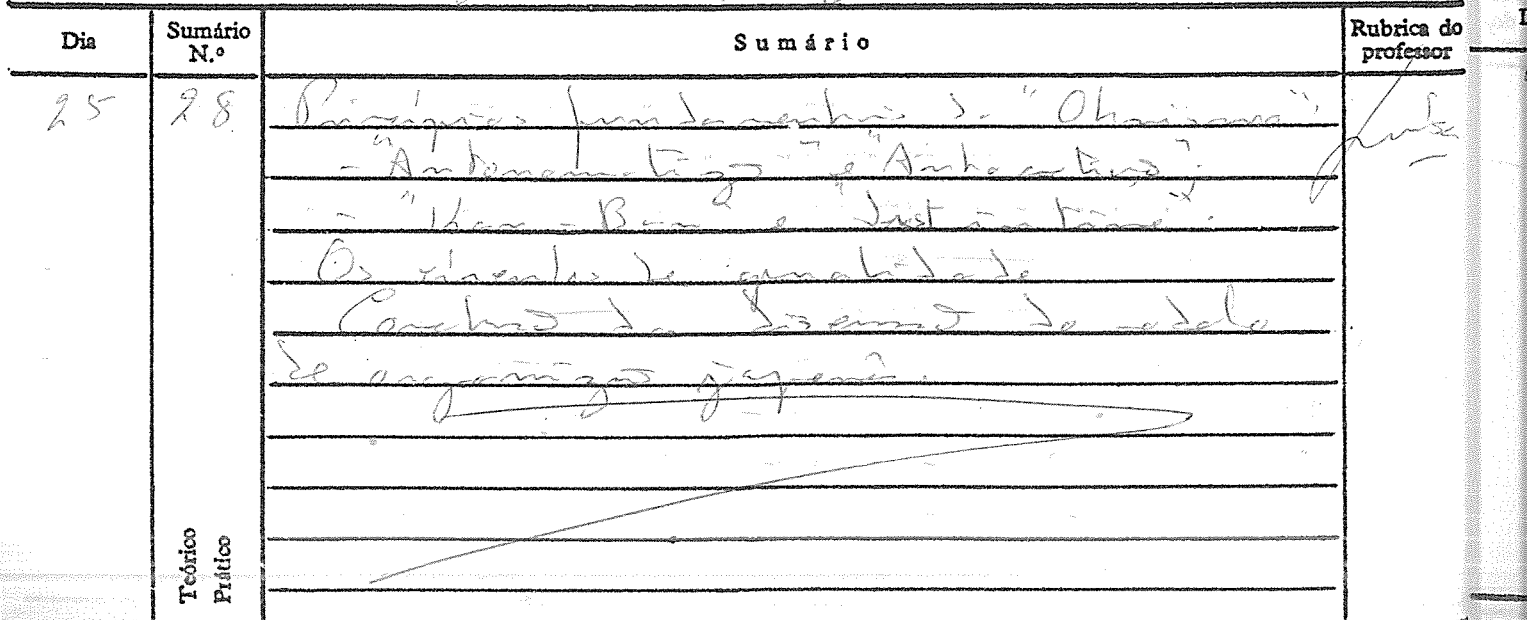 Dia Sumário N.º Sumário Rubrica do professor
25 28 Princípios fundamentais do "Ohnismo":
- "Autonomatização" e "Auto-activação";
- "Kan-Ban e Just in time".
Os círculos de qualidade
Conclusão da discussão do modelo
de organização japonês.
Teórico
Prático